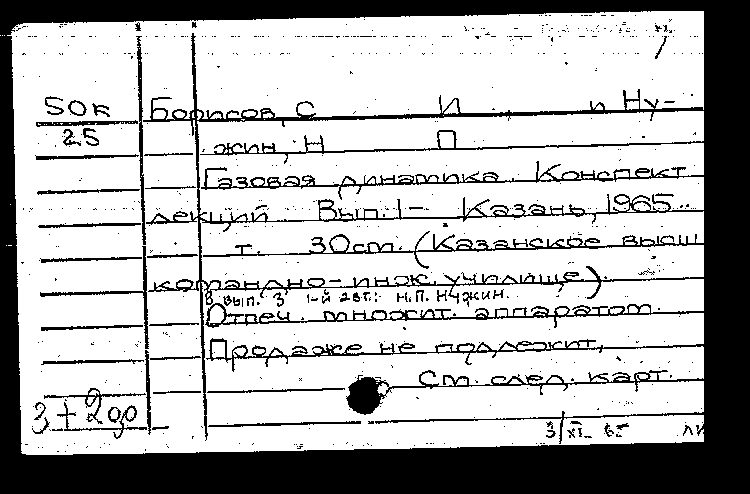 50к Борисов, С И , и Ну-
25 жин, Н П
Газовая динамика. Конспект
лекций. Вып. 1- Казань, 1965..
т. 30см. (Казанское высш
командно-инж. училище).
В вып. 3 1-й авт.: Н.П. Нужин.
Отпеч. множит. аппаратом.
Продаже не подлежит,
См. след. карт.
3/XI-